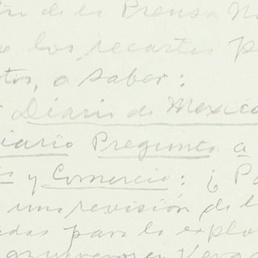 de la Prensa
los recortes
tos, a saber:
Diario de Mexico
iario Pregunta a
s y Comercio: ¿Po
una revisión de l
das para la explo